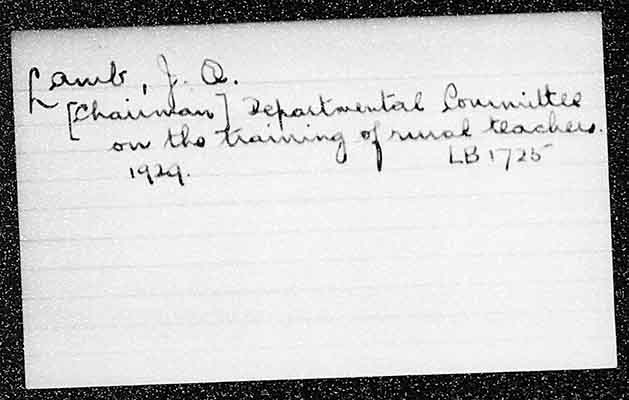 Lamb, J. Q.
[Chairman] Departmental Committee
on the training of rural teachers.
1929. LB 1725